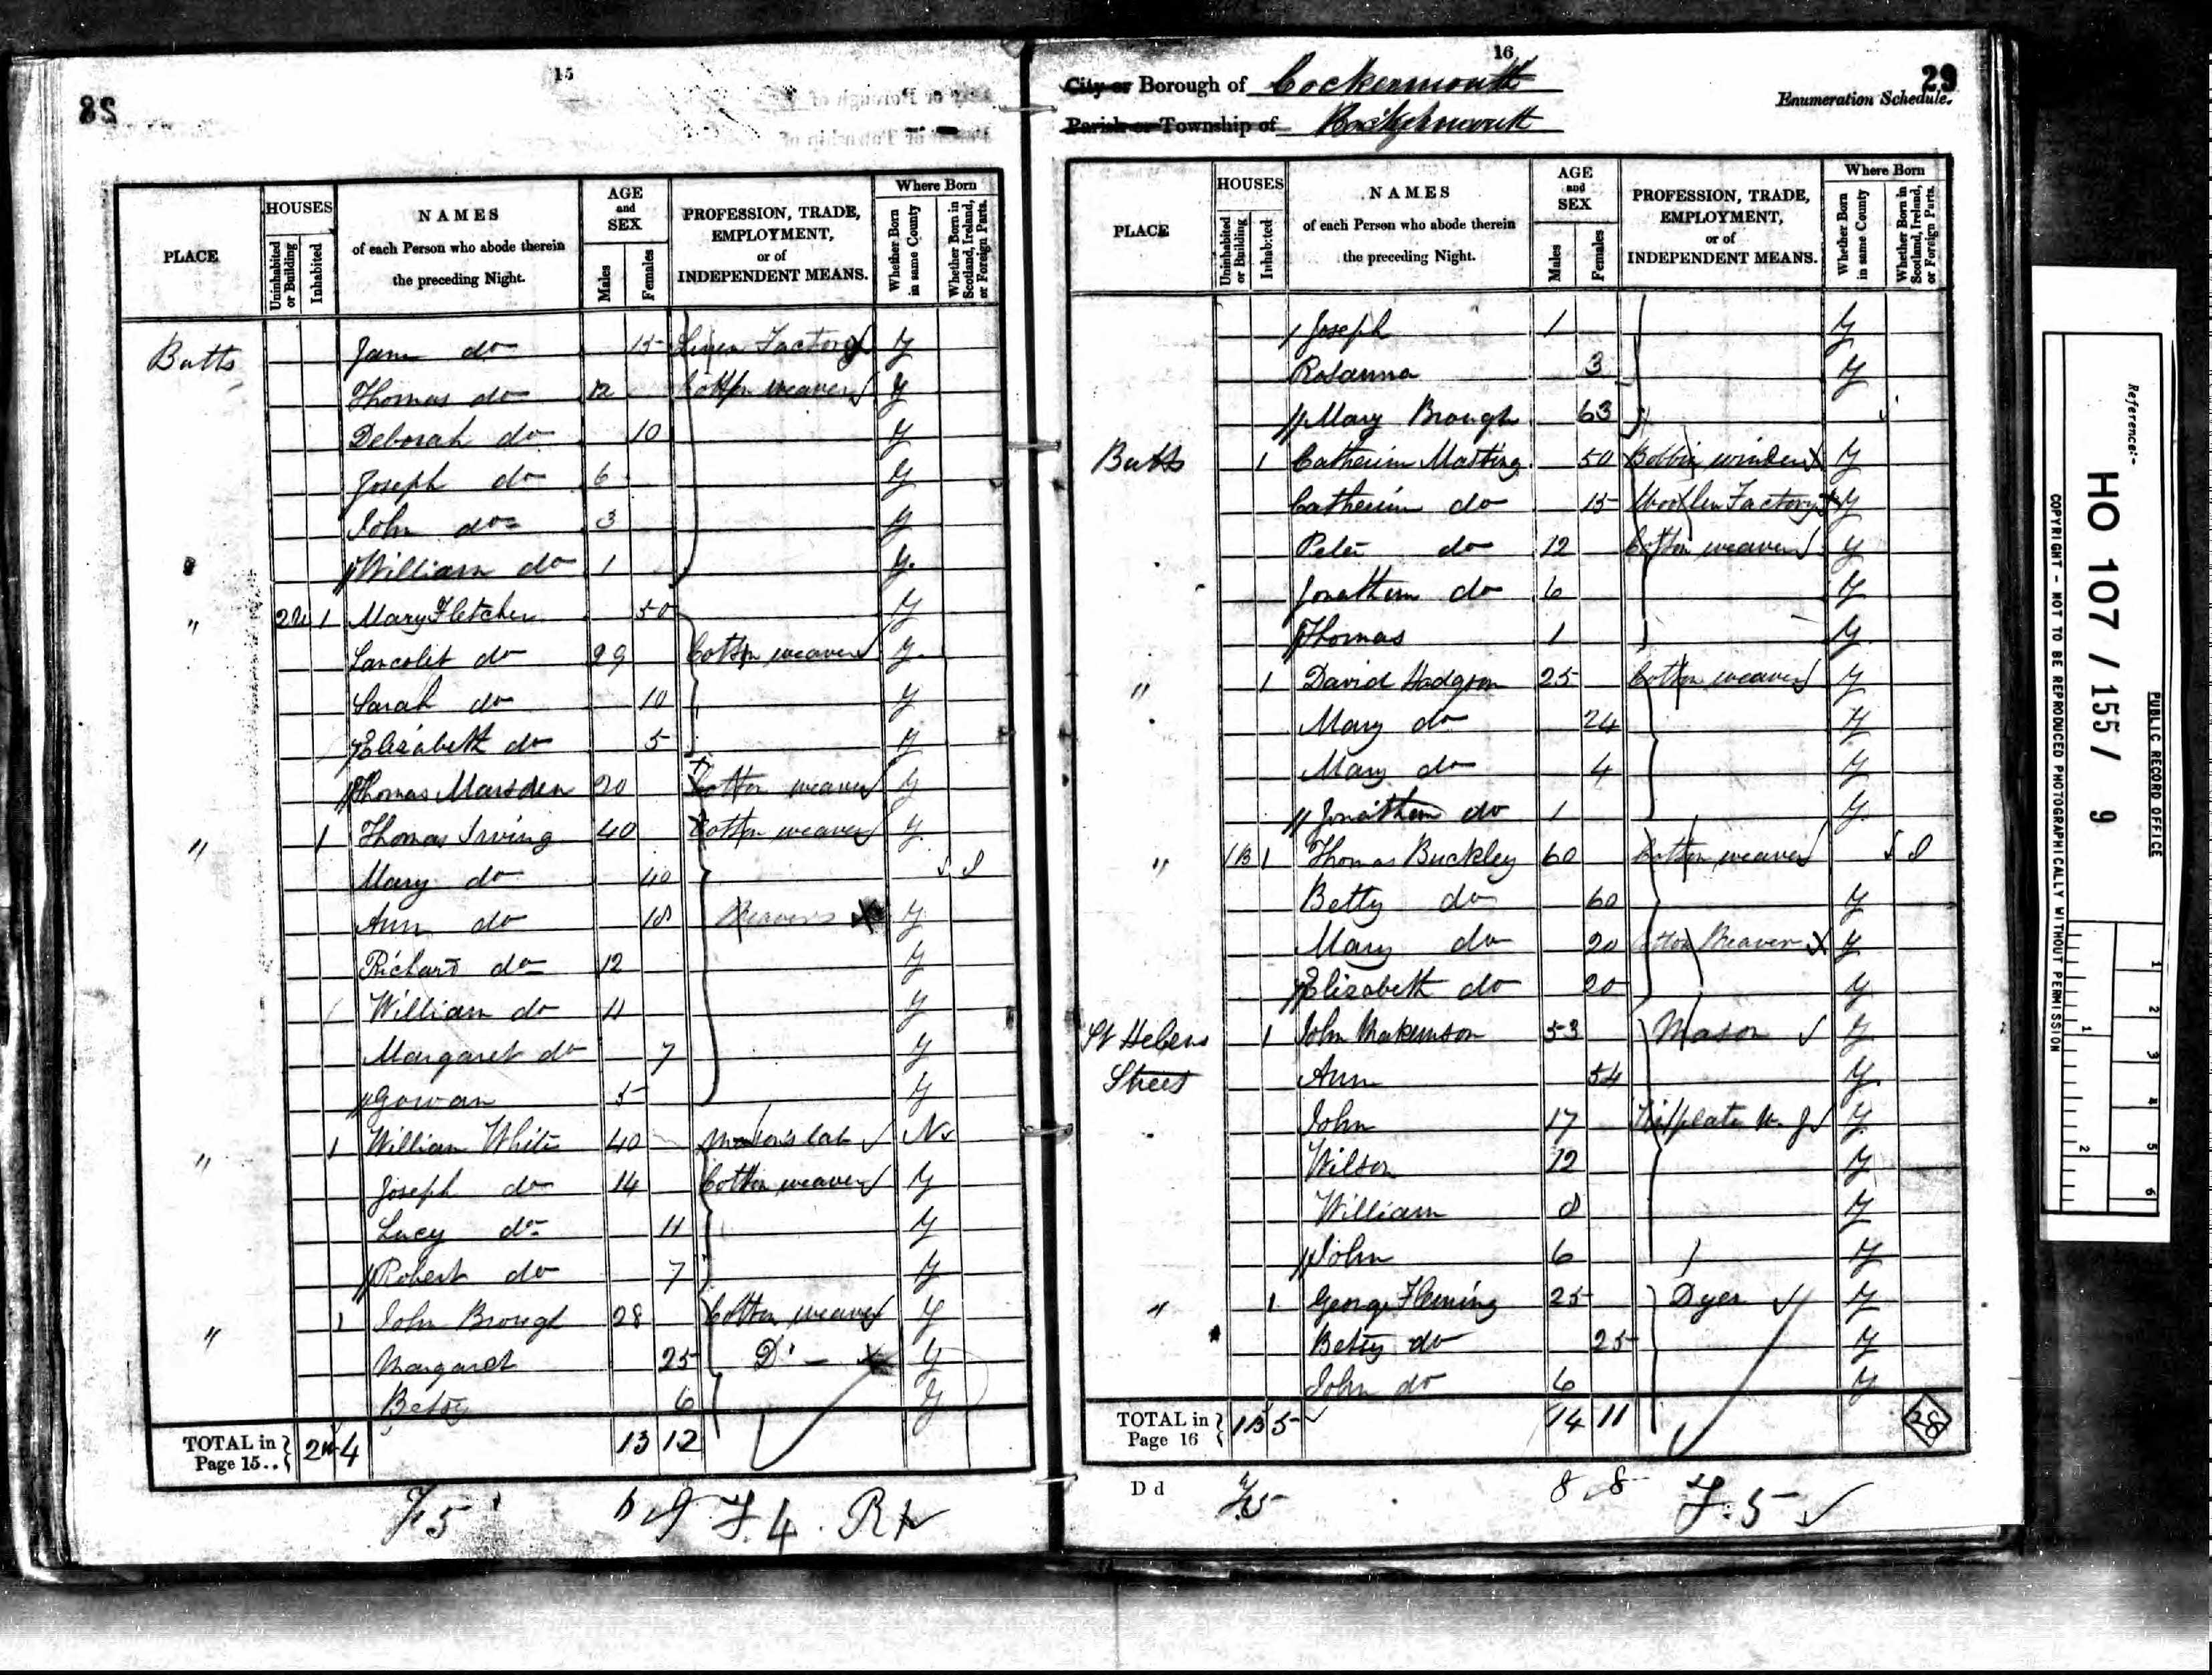 15
28
PLACE
HOUSES
Uninhabited or Building
Inhabited
NAMES
of each Person who abode therein
the preceding Night.
AGE and SEX
Males
Females
PROFESSION, TRADE,
EMPLOYMENT,
or of
INDEPENDENT MEANS.
Where Born
Whether Born in same County
Whether Born in Scotland, Ireland, or Foreign Parts.
Butts Jane do 15 Linen Factory Y
Thomas do 12 Cotton weaver Y
Deborah do 10 Y
Joseph do 6 Y
John do 3 Y
William do 1 Y
" 2u 1 Mary Fletcher 50 Y
Lancelet do 29 Cotton weaver Y
Sarah do 10 Y
Elizabeth do 5 Y
Thomas Marsden 20 Cotton weaver Y
" 1 Thomas Irving 40 Cotton weaver Y
Mary do 40 I
Ann do 18 Weavers Y
Richard do 12 Y
William do 11 Y
Margaret do 7 Y
Gowan 5 Y
" 1 William White 40 Mason's lab N
Joseph do 14 Cotton weaver Y
Lucy do 11 Y
Robert do 7 Y
" 1 John Brough 28 Cotton weaver Y
Margaret 25 Do Y
Betsy 6 Y
TOTAL in Page 15.. 2u 4 13 12
F 4
16
29
City or Borough of Cockermouth
Enumeration Schedule.
Parish or Township of
PLACE
HOUSES
Uninhabited or Building
Inhabited
NAMES
of each Person who abode therein
the preceding Night.
AGE and SEX
Males
Females
PROFESSION, TRADE,
EMPLOYMENT,
or of
INDEPENDENT MEANS.
Where Born
Whether Born in same County
Whether Born in Scotland, Ireland, or Foreign Parts.
Joseph 1 Y
Rosanna 3 Y
Mary Brough 63
Butts 1 Catherine 50 Bobbin winder Y
Catherine do 15 Woollen Factory Y
Peter do 12 Cotton weaver Y
Jonathan do 6 Y
Thomas 1 Y
" 1 David Hodgson 25 Cotton weaver Y
Mary do 24 Y
Mary do 4 Y
Jonathan do 1 Y
" 1B 1 Thomas Buckley 60 Cotton weaver I
Betty do 60 Y
Mary do 20 Cotton Weaver Y
Elizabeth do 20 Y
St Helens 1 John Makinson 53 Mason Y
Street Ann 54 Y
John 17 Y
Wilson 12 Y
William 8 Y
John 6 Y
" 1 George Fleming 25 Dyer Y
Betsy do 25 Y
John do 6 Y
TOTAL in Page 16 1B 5 14 11
28
D d
8 8 F. 5
Reference:-
HO 107 / 155 / 9
PUBLIC RECORD OFFICE
COPYRIGHT - NOT TO BE REPRODUCED PHOTOGRAPHICALLY WITHOUT PERMISSION
1 2 3 4 5 6
1 2